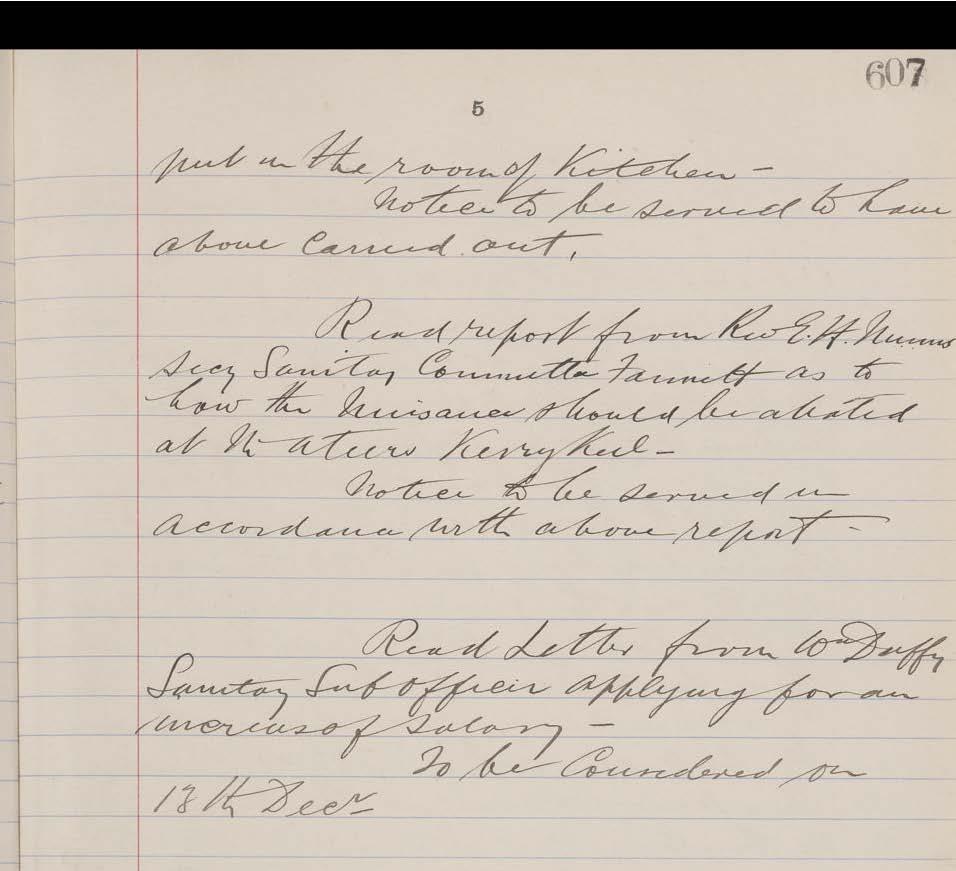 607
5
put in the room of Kitchen –
Notice to be served to have
above carried out.
Read report from Rev E. H.
Secy Sanitary Committee Fannett as to
how the Nuisance should be abated
at Kerrykeel –
Notice to be served in
accordance with above report –
Read Letter from Wm Duffy
Sanitary Sub officer applying for an
increase of salary –
To be Considered on
Decr